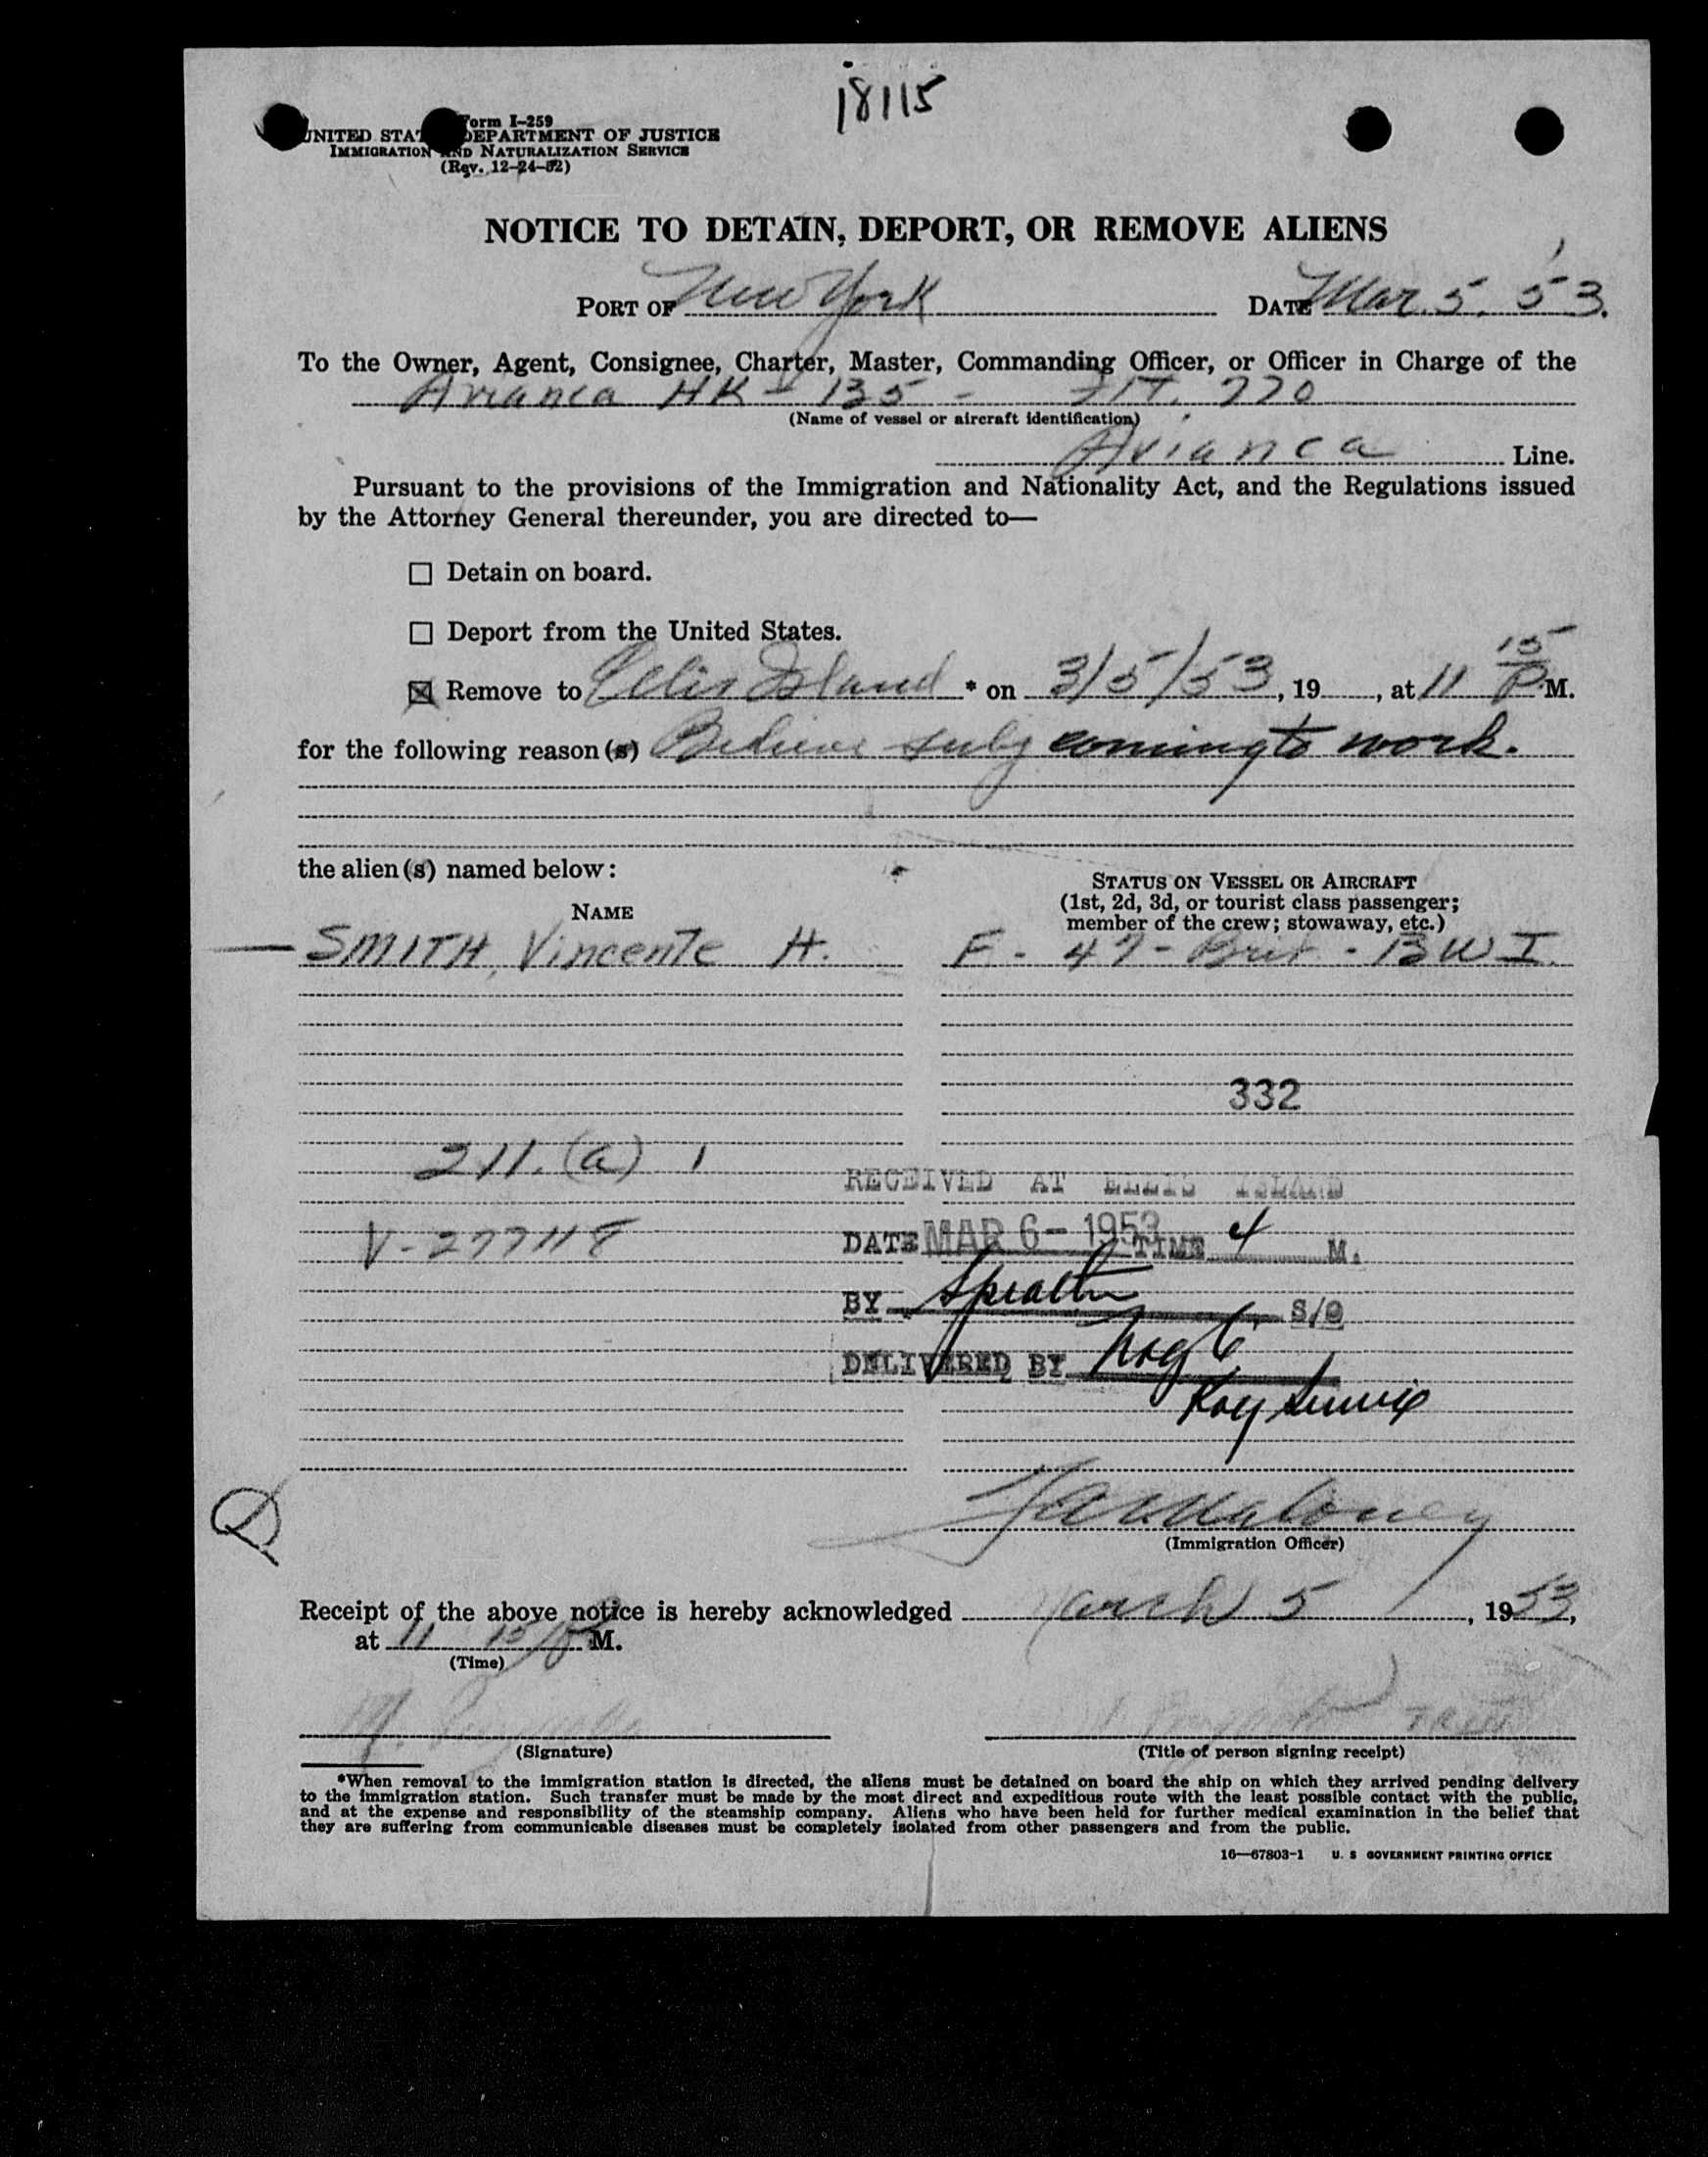 18115
Form I-259
UNITED STATES DEPARTMENT OF JUSTICE
IMMIGRATION AND NATURALIZATION SERVICE
(Rev. 12-24-52)
NOTICE TO DETAIN, DEPORT, OR REMOVE ALIENS
PORT OF New York DATE Mar. 5, 53.
To the Owner, Agent, Consignee, Charter, Master, Commanding Officer, or Officer in Charge of the
Avianca HK - 135 - Flt. 770
(Name of vessel or aircraft identification)
Avianca Line.
Pursuant to the provisions of the Immigration and Nationality Act, and the Regulations issued
by the Attorney General thereunder, you are directed to—
☐ Detain on board.
☐ Deport from the United States.
☒ Remove to Ellis Island * on 3/5/53, 19 , at 11 15 P.M.
for the following reason(s) Believe subj coming to work.
the alien(s) named below:
STATUS ON VESSEL OR AIRCRAFT
(1st, 2d, 3d, or tourist class passenger;
member of the crew; stowaway, etc.)
NAME
SMITH, Vincente H. F - 47 - Brit - BWI.
332
211.(a) 1
RECEIVED AT ELLIS ISLAND
V-277118
DATE MAR 6 - 1953 TIME 4 M.
BY S/O
DELIVERED BY
Roy
Maloney
(Immigration Officer)
Receipt of the above notice is hereby acknowledged March 5, 1953,
at 11 15 P M.
(Time)
M.
(Signature) (Title of person signing receipt)
*When removal to the immigration station is directed, the aliens must be detained on board the ship on which they arrived pending delivery
to the immigration station. Such transfer must be made by the most direct and expeditious route with the least possible contact with the public,
and at the expense and responsibility of the steamship company. Aliens who have been held for further medical examination in the belief that
they are suffering from communicable diseases must be completely isolated from other passengers and from the public.
16—67803-1 U. S GOVERNMENT PRINTING OFFICE